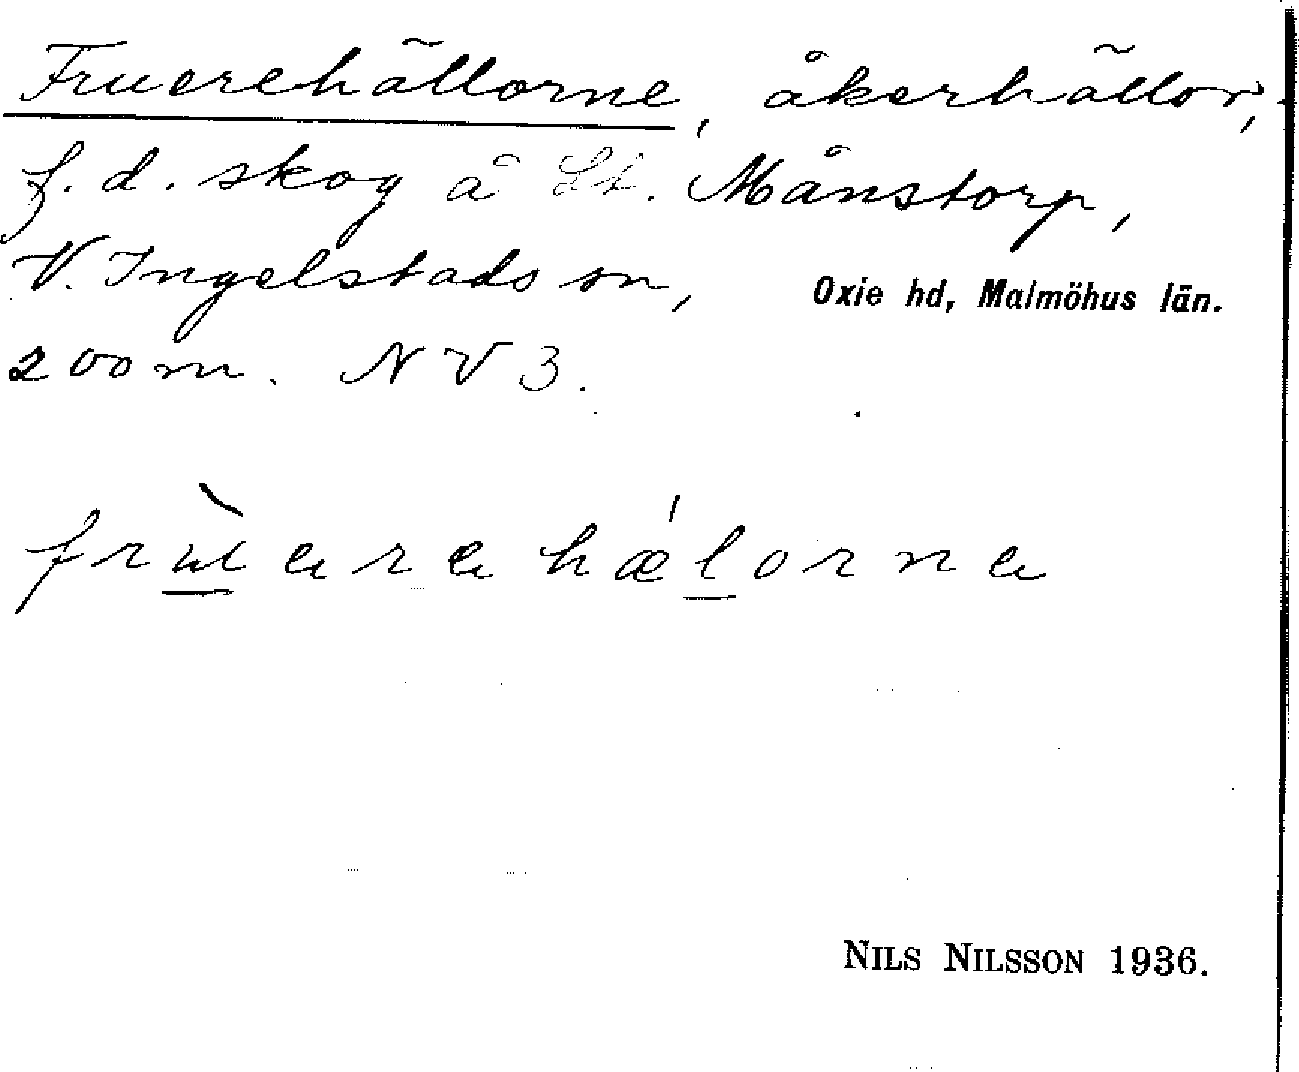 Fruerehällorne, åkerhällor,
f.d. skog å St. Månstorp,
V. Ingelstads sn,
Oxie hd, Malmöhus län.
200 m. NV 3.
frùerehǽlorne
NILS NILSSON 1936.